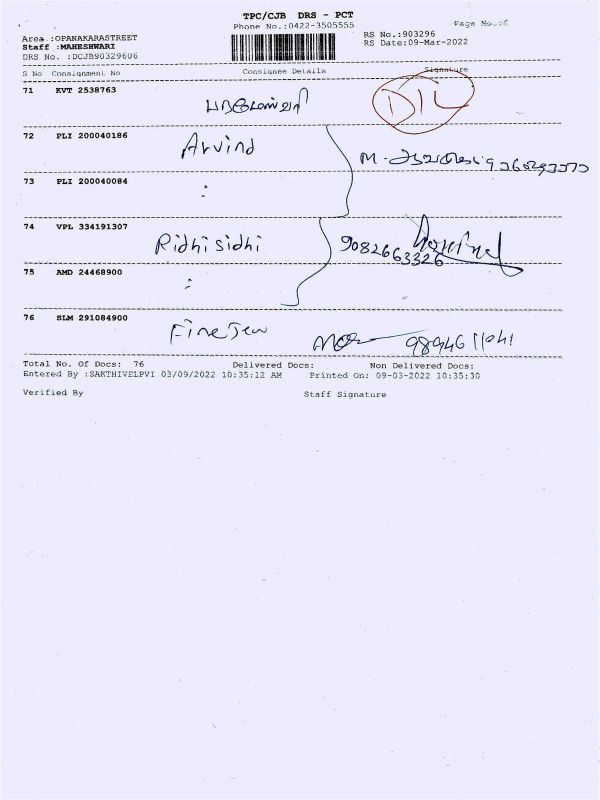 TPC/CJB DRS - PCT
Phone No.:0422-3505555
Page No.:6
Area :OPANAKARASTREET
RS No.:903296
Staff :MAHESHWARI
RS Date:09-Mar-2022
DRS No. :DCJB90329606
S No Consignment No Consignee Details Signature
71 KVT 2538763
72 PLI 200040186 Arvind
73 PLI 200040084 :
74 VPL 334191307 Ridhi sidhi 9082663326
75 AMD 24468900 :
76 SLM 291084900 Fine Jew
Total No. Of Docs: 76 Delivered Docs: Non Delivered Docs:
Entered By :SAKTHIVELPVI 03/09/2022 10:35:12 AM Printed On: 09-03-2022 10:35:30
Verified By Staff Signature